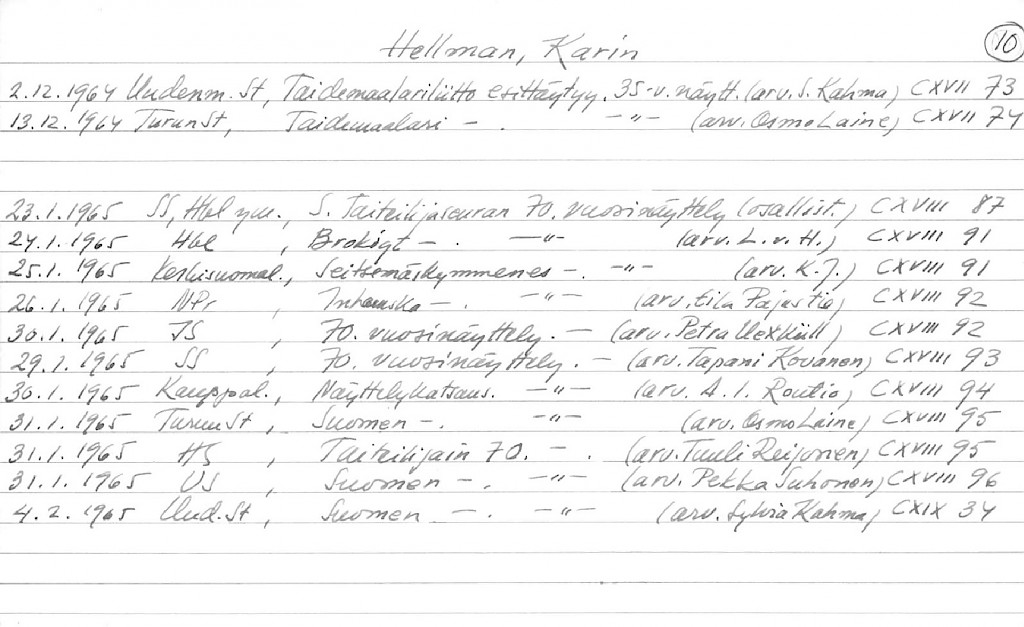 Hellman, Karin 10
2.12.1964 Uudenm. St, Taidemaalariliitto esittäytyy. 35-v. näytt. (arv. S. Kahma) CXVII 73
13.12.1964 TurunSt, Taidemaalari - . -"- (arv. Osmo Laine) CXVII 74
23.1.1965 SS, Hbl ym., S. Taiteilijaseuran 70. vuosinäyttely (osallist.) CXVIII 87
24.1.1965 Hbl , Brokigt - . -"- (arv. L.v.H.) CXVIII 91
25.1.1965 Keskisuomal., Seitsemäskymmenes - . -"- (arv. K.J.) CXVIII 91
26.1.1965 NPr , - . -"- (arv. Eila Pajastie) CXVIII 92
30.1.1965 , 70. vuosinäyttely. - (arv. Petra Uexküll) CXVIII 92
29.1.1965 SS , 70. vuosinäyttely. - (arv. Tapani Kovanen) CXVIII 93
30.1.1965 Kauppal., Näyttelykatsaus. -"- (arv. A.I. Routio) CXVIII 94
31.1.1965 TurunSt , Suomen - . -"- (arv. Osmo Laine) CXVIII 95
31.1.1965 HS , Taiteilijain 70. - . (arv. Tuuli Reijonen) CXVIII 95
31.1.1965 US , Suomen - . -"- (arv. Pekka Suhonen) CXVIII 96
4.2.1965 Uud. St , Suomen - . -"- (arv. Sylvia Kahma) CXIX 34